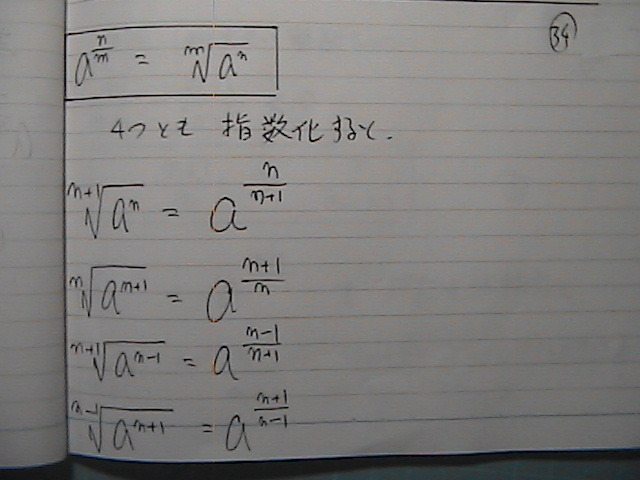 34
a^{\frac{n}{m}} = \sqrt[m]{a^n}
4つとも 指数化すると.
\sqrt[n+1]{a^n} = a^{\frac{n}{n+1}}
\sqrt[n]{a^{n+1}} = a^{\frac{n+1}{n}}
\sqrt[n+1]{a^{n-1}} = a^{\frac{n-1}{n+1}}
\sqrt[n-1]{a^{n+1}} = a^{\frac{n+1}{n-1}}